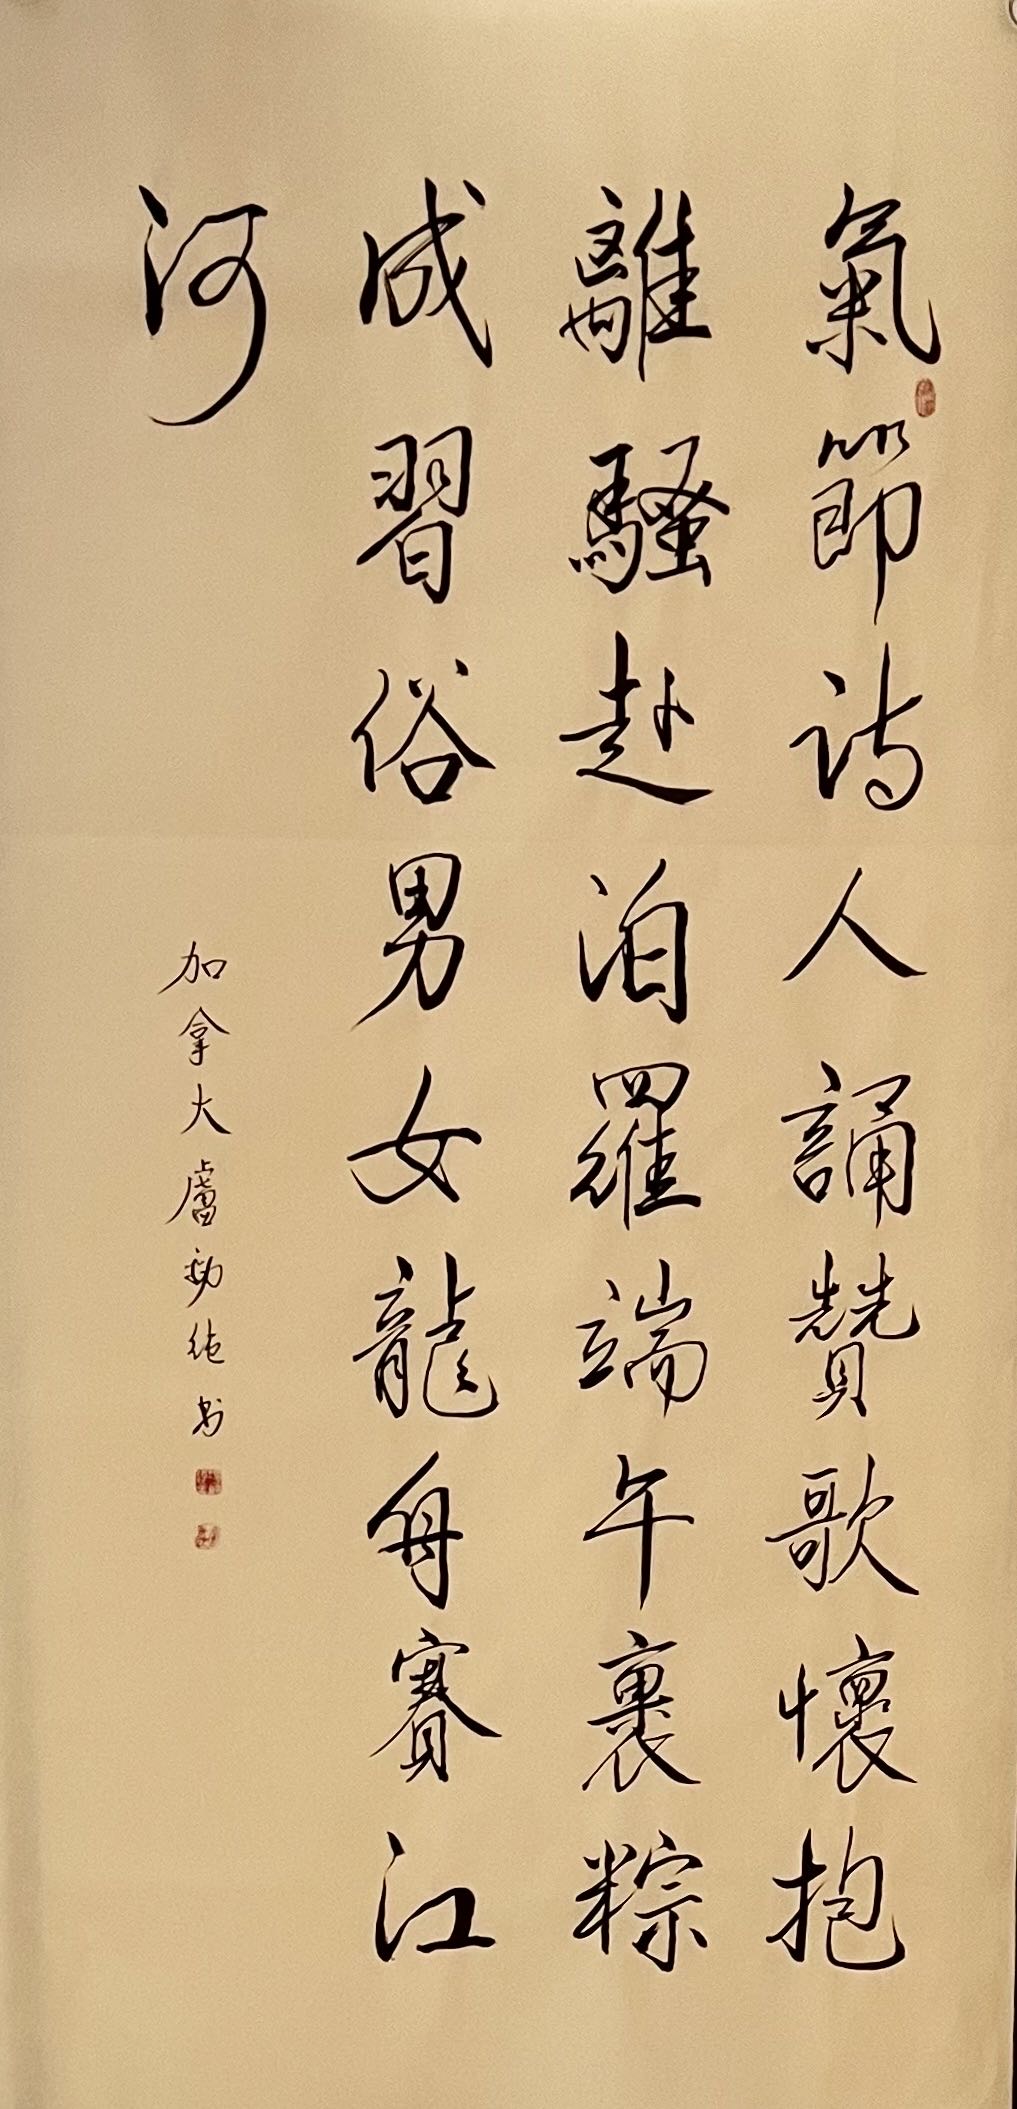 氣節詩人誦贊歌懷抱
離騷赴泊羅端午裹粽
成習俗男女龍舟賽江
河
加拿大盧勁純书